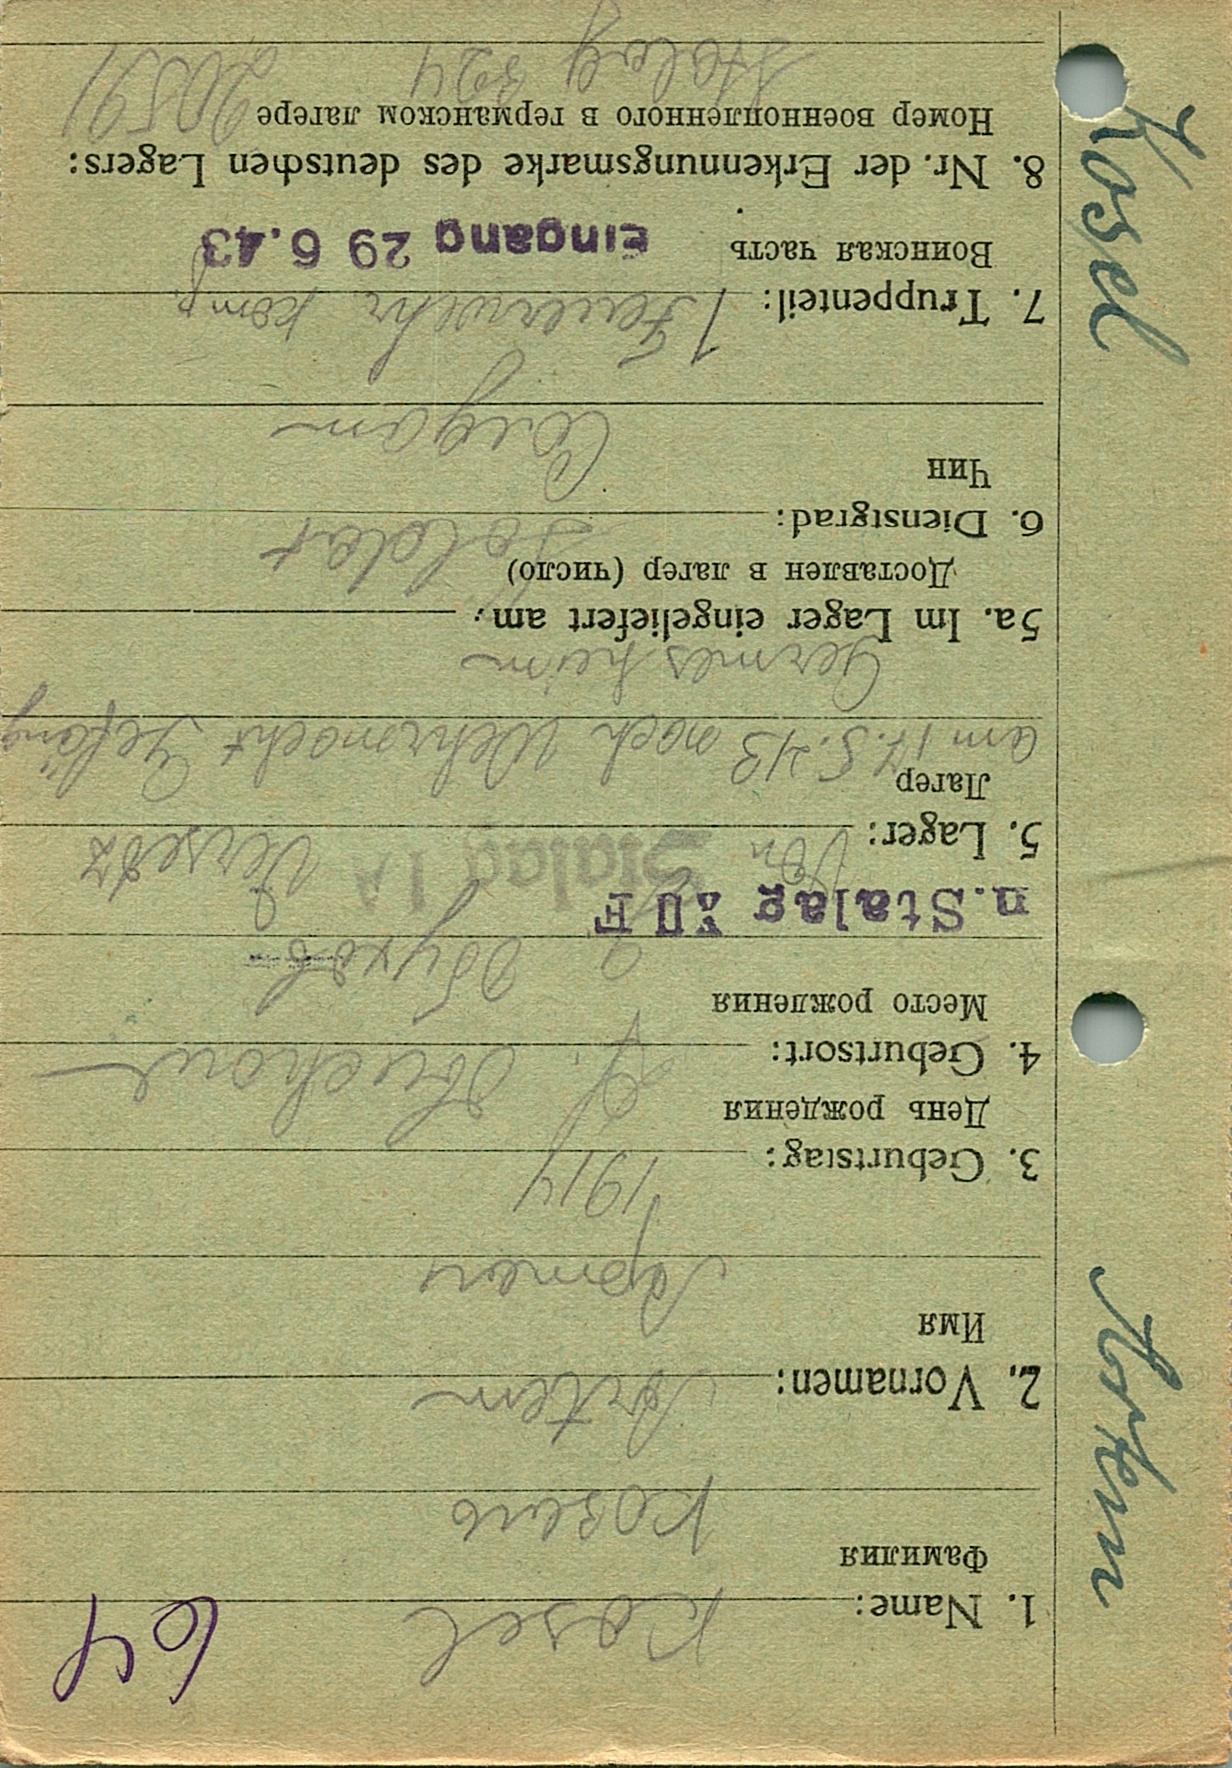 64
1. Name: Kosel
Фамилия
Козель
2. Vornamen: Artem
Имя
Артем
3. Geburtstag: 1914
День рождения
4. Geburtsort: Obuchow
Место рождения
Обухов
n. Stalag XII F
5. Lager: Von Stalag I A Versetz
Лагер
am 17.5.43 nach Wehrmacht Gefäng
Germersheim
5a. Im Lager eingeliefert am:
Доставлен в лагер (число)
6. Dienstgrad: Soldat
Чин
7. Truppenteil: 1 Feuerwehr Komp.
Воинская часть
Eingang 29 6.43
8. Nr. der Erkennungsmarke des deutschen Lagers:
Номер военнопленного в германском лагере
Stalag 324 20591
Kosel Artem